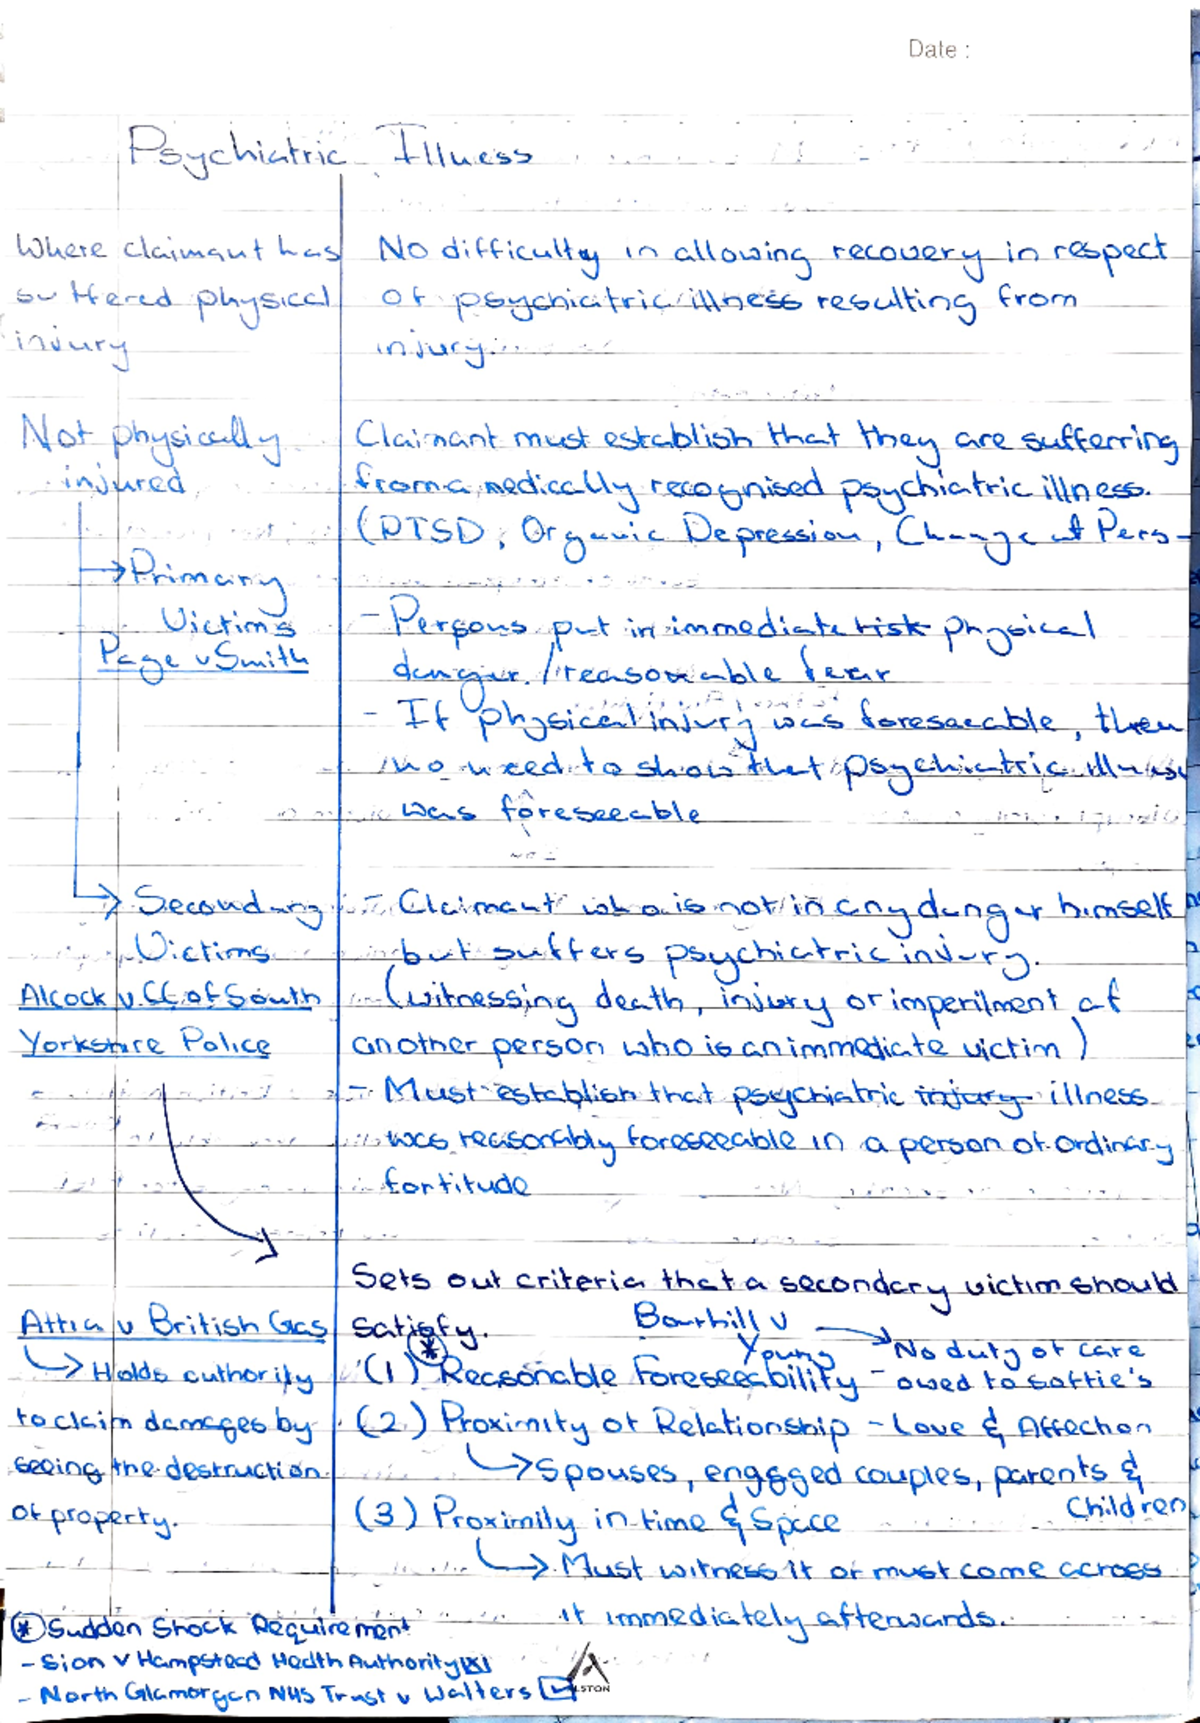 Date :
Psychiatric Illness
Where claimant has
suffered physical
injury
No difficulty in allowing recovery in respect
of psychiatric illness resulting from
injury.
Not physically
injured
Claimant must establish that they are sufferring
from a medically recognised psychiatric illness.
(PTSD, Organic Depression, Change of Pers-
→ Primary
Victims
Page v Smith
- Persons put in immediate risk physical
danger. / reasonable fear
- If physical injury was foreseeable, then
no need to show that psychiatric illness
was foreseeable
→ Secondary
Victims
Alcock v. CC. of South
Yorkshire Police
- Claimant who is not in any danger himself
but suffers psychiatric injury.
(witnessing death, injury or imperilment of
another person who is an immediate victim)
- Must establish that psychiatric injury illness
was reasonably foreseeable in a person of ordinary
fortitude
Sets out criteria that a secondary victim should
satisfy.
Attia v British Gas
→ Holds authority
to claim damages by
seeing the destruction
of property.
Bourhill v
Young → No duty of care
(1) Reasonable Foreseeability - owed to softie's
(2) Proximity of Relationship - Love & Affection
→ Spouses, engaged couples, parents &
Children
(3) Proximity in time & Space
→ Must witness it or must come across
it immediately afterwards.
* Sudden Shock Requirement
- Sion v Hampstead Health Authority [x]
- North Glamorgan NHS Trust v Walters [✓]